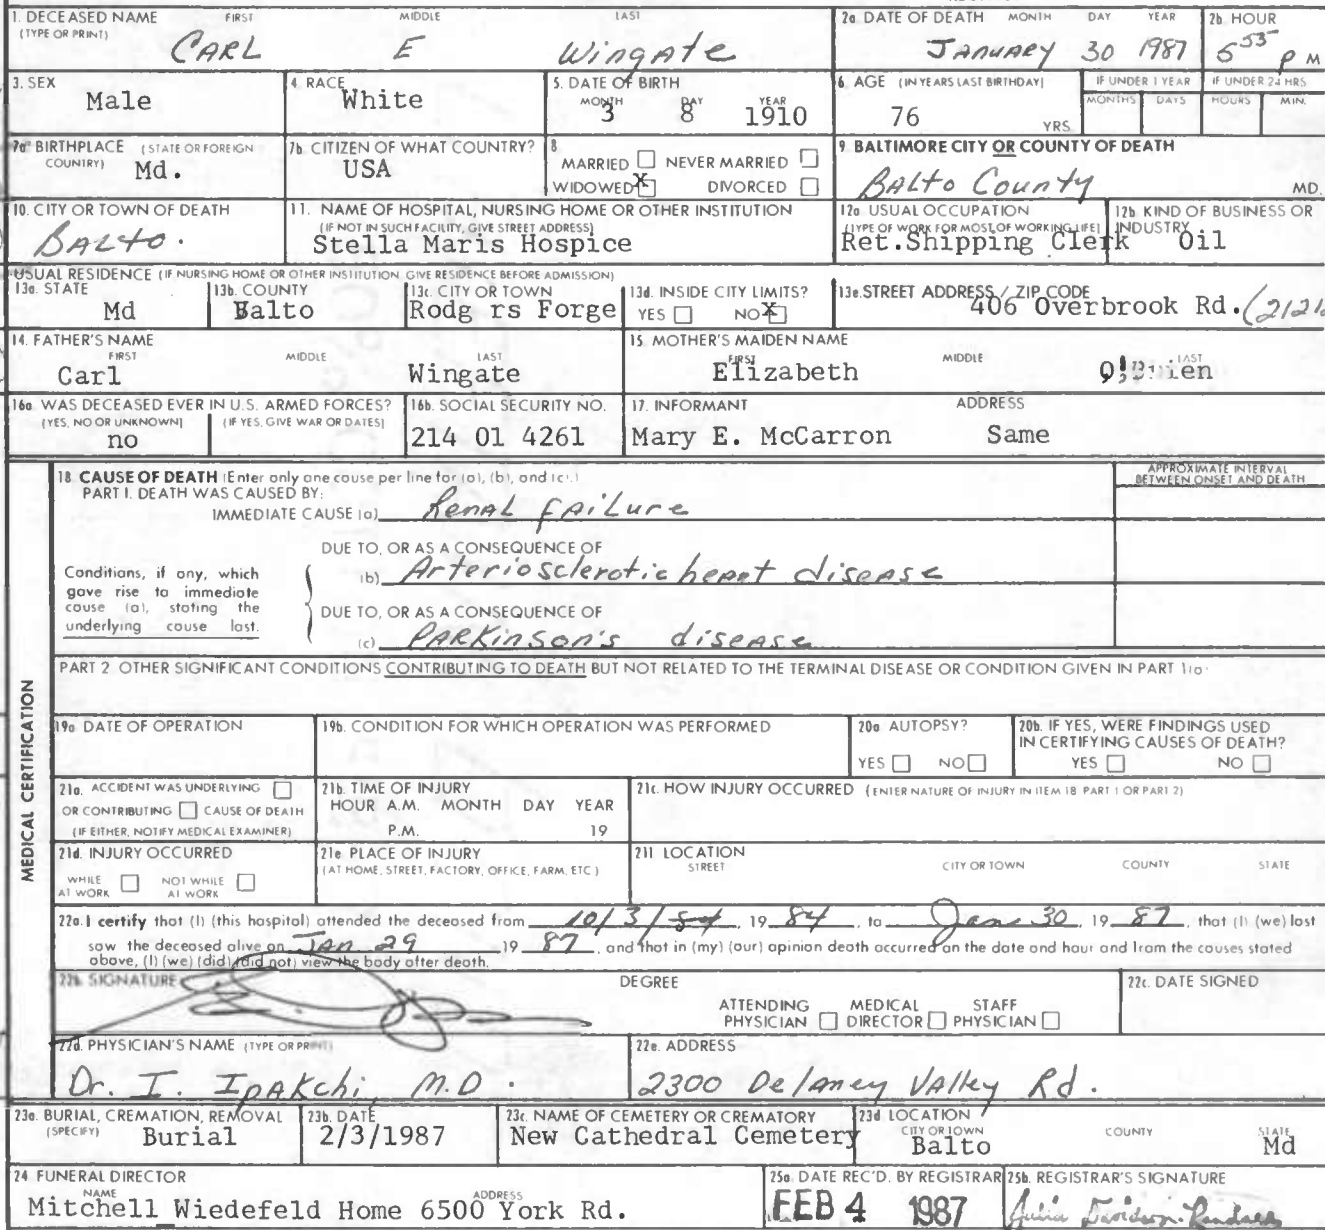 1. DECEASED NAME FIRST MIDDLE LAST
(TYPE OR PRINT)
CARL E Wingate
2a DATE OF DEATH MONTH DAY YEAR
January 30 1987
2b HOUR
5 55 P M
3. SEX
Male
4. RACE
White
5. DATE OF BIRTH
MONTH DAY YEAR
3 8 1910
6. AGE (IN YEARS LAST BIRTHDAY)
76 YRS.
IF UNDER 1 YEAR
MONTHS DAYS
IF UNDER 24 HRS
HOURS MIN.
7a BIRTHPLACE (STATE OR FOREIGN
COUNTRY) Md.
7b. CITIZEN OF WHAT COUNTRY?
USA
8
MARRIED NEVER MARRIED
WIDOWED X DIVORCED
9. BALTIMORE CITY OR COUNTY OF DEATH
Balto County MD.
10. CITY OR TOWN OF DEATH
BALTO.
11. NAME OF HOSPITAL, NURSING HOME OR OTHER INSTITUTION
(IF NOT IN SUCH FACILITY, GIVE STREET ADDRESS)
Stella Maris Hospice
12a. USUAL OCCUPATION
(TYPE OF WORK FOR MOST OF WORKING LIFE)
Ret.Shipping Clerk
12b KIND OF BUSINESS OR
INDUSTRY Oil
USUAL RESIDENCE (IF NURSING HOME OR OTHER INSTITUTION GIVE RESIDENCE BEFORE ADMISSION)
13a. STATE
Md
13b. COUNTY
Balto
13c. CITY OR TOWN
Rodg rs Forge
13d. INSIDE CITY LIMITS?
YES NO X
13e. STREET ADDRESS / ZIP CODE
406 Overbrook Rd.
14. FATHER'S NAME
FIRST MIDDLE LAST
Carl Wingate
15. MOTHER'S MAIDEN NAME
FIRST MIDDLE LAST
Elizabeth O'Brien
16a. WAS DECEASED EVER IN U.S. ARMED FORCES?
(YES, NO OR UNKNOWN) (IF YES, GIVE WAR OR DATES)
no
16b. SOCIAL SECURITY NO.
214 01 4261
17. INFORMANT ADDRESS
Mary E. McCarron Same
MEDICAL CERTIFICATION
18. CAUSE OF DEATH (Enter only one cause per line for (a), (b), and (c).)
PART I. DEATH WAS CAUSED BY:
IMMEDIATE CAUSE (a) Renal failure
APPROXIMATE INTERVAL
BETWEEN ONSET AND DEATH
Conditions, if any, which
gave rise to immediate
cause (a), stating the
underlying cause last.
DUE TO, OR AS A CONSEQUENCE OF
(b) Arteriosclerotic heart disease
DUE TO, OR AS A CONSEQUENCE OF
(c) Parkinson's disease
PART 2 OTHER SIGNIFICANT CONDITIONS CONTRIBUTING TO DEATH BUT NOT RELATED TO THE TERMINAL DISEASE OR CONDITION GIVEN IN PART 1(a)
19a DATE OF OPERATION
19b. CONDITION FOR WHICH OPERATION WAS PERFORMED
20a AUTOPSY?
YES NO
20b. IF YES, WERE FINDINGS USED
IN CERTIFYING CAUSES OF DEATH?
YES NO
21a. ACCIDENT WAS UNDERLYING
OR CONTRIBUTING CAUSE OF DEATH
(IF EITHER, NOTIFY MEDICAL EXAMINER)
21b. TIME OF INJURY
HOUR A.M. MONTH DAY YEAR
P.M. 19
21c. HOW INJURY OCCURRED (ENTER NATURE OF INJURY IN ITEM 18 PART 1 OR PART 2)
21d. INJURY OCCURRED
WHILE AT WORK NOT WHILE AT WORK
21e PLACE OF INJURY
(AT HOME, STREET, FACTORY, OFFICE, FARM, ETC)
21f LOCATION
STREET CITY OR TOWN COUNTY STATE
22a. I certify that (I) (this hospital) attended the deceased from 10/3/84, 19 84, to Jan 30, 19 87, that (I) (we) last
saw the deceased alive on Jan 29 19 87, and that in (my) (our) opinion death occurred on the date and hour and from the causes stated
above, (I) (we) (did) (did not) view the body after death.
22b. SIGNATURE DEGREE
ATTENDING PHYSICIAN MEDICAL DIRECTOR STAFF PHYSICIAN
22c. DATE SIGNED
22d. PHYSICIAN'S NAME (TYPE OR PRINT)
Dr. I. Ipakchi, M.D.
22e. ADDRESS
2300 Delaney Valley Rd.
23a. BURIAL, CREMATION, REMOVAL
(SPECIFY) Burial
23b. DATE
2/3/1987
23c. NAME OF CEMETERY OR CREMATORY
New Cathedral Cemetery
23d LOCATION
CITY OR TOWN COUNTY STATE
Balto Md
24 FUNERAL DIRECTOR
NAME ADDRESS
Mitchell Wiedefeld Home 6500 York Rd.
25a. DATE REC'D. BY REGISTRAR
FEB 4 1987
25b. REGISTRAR'S SIGNATURE
Julia Davidson-Randall